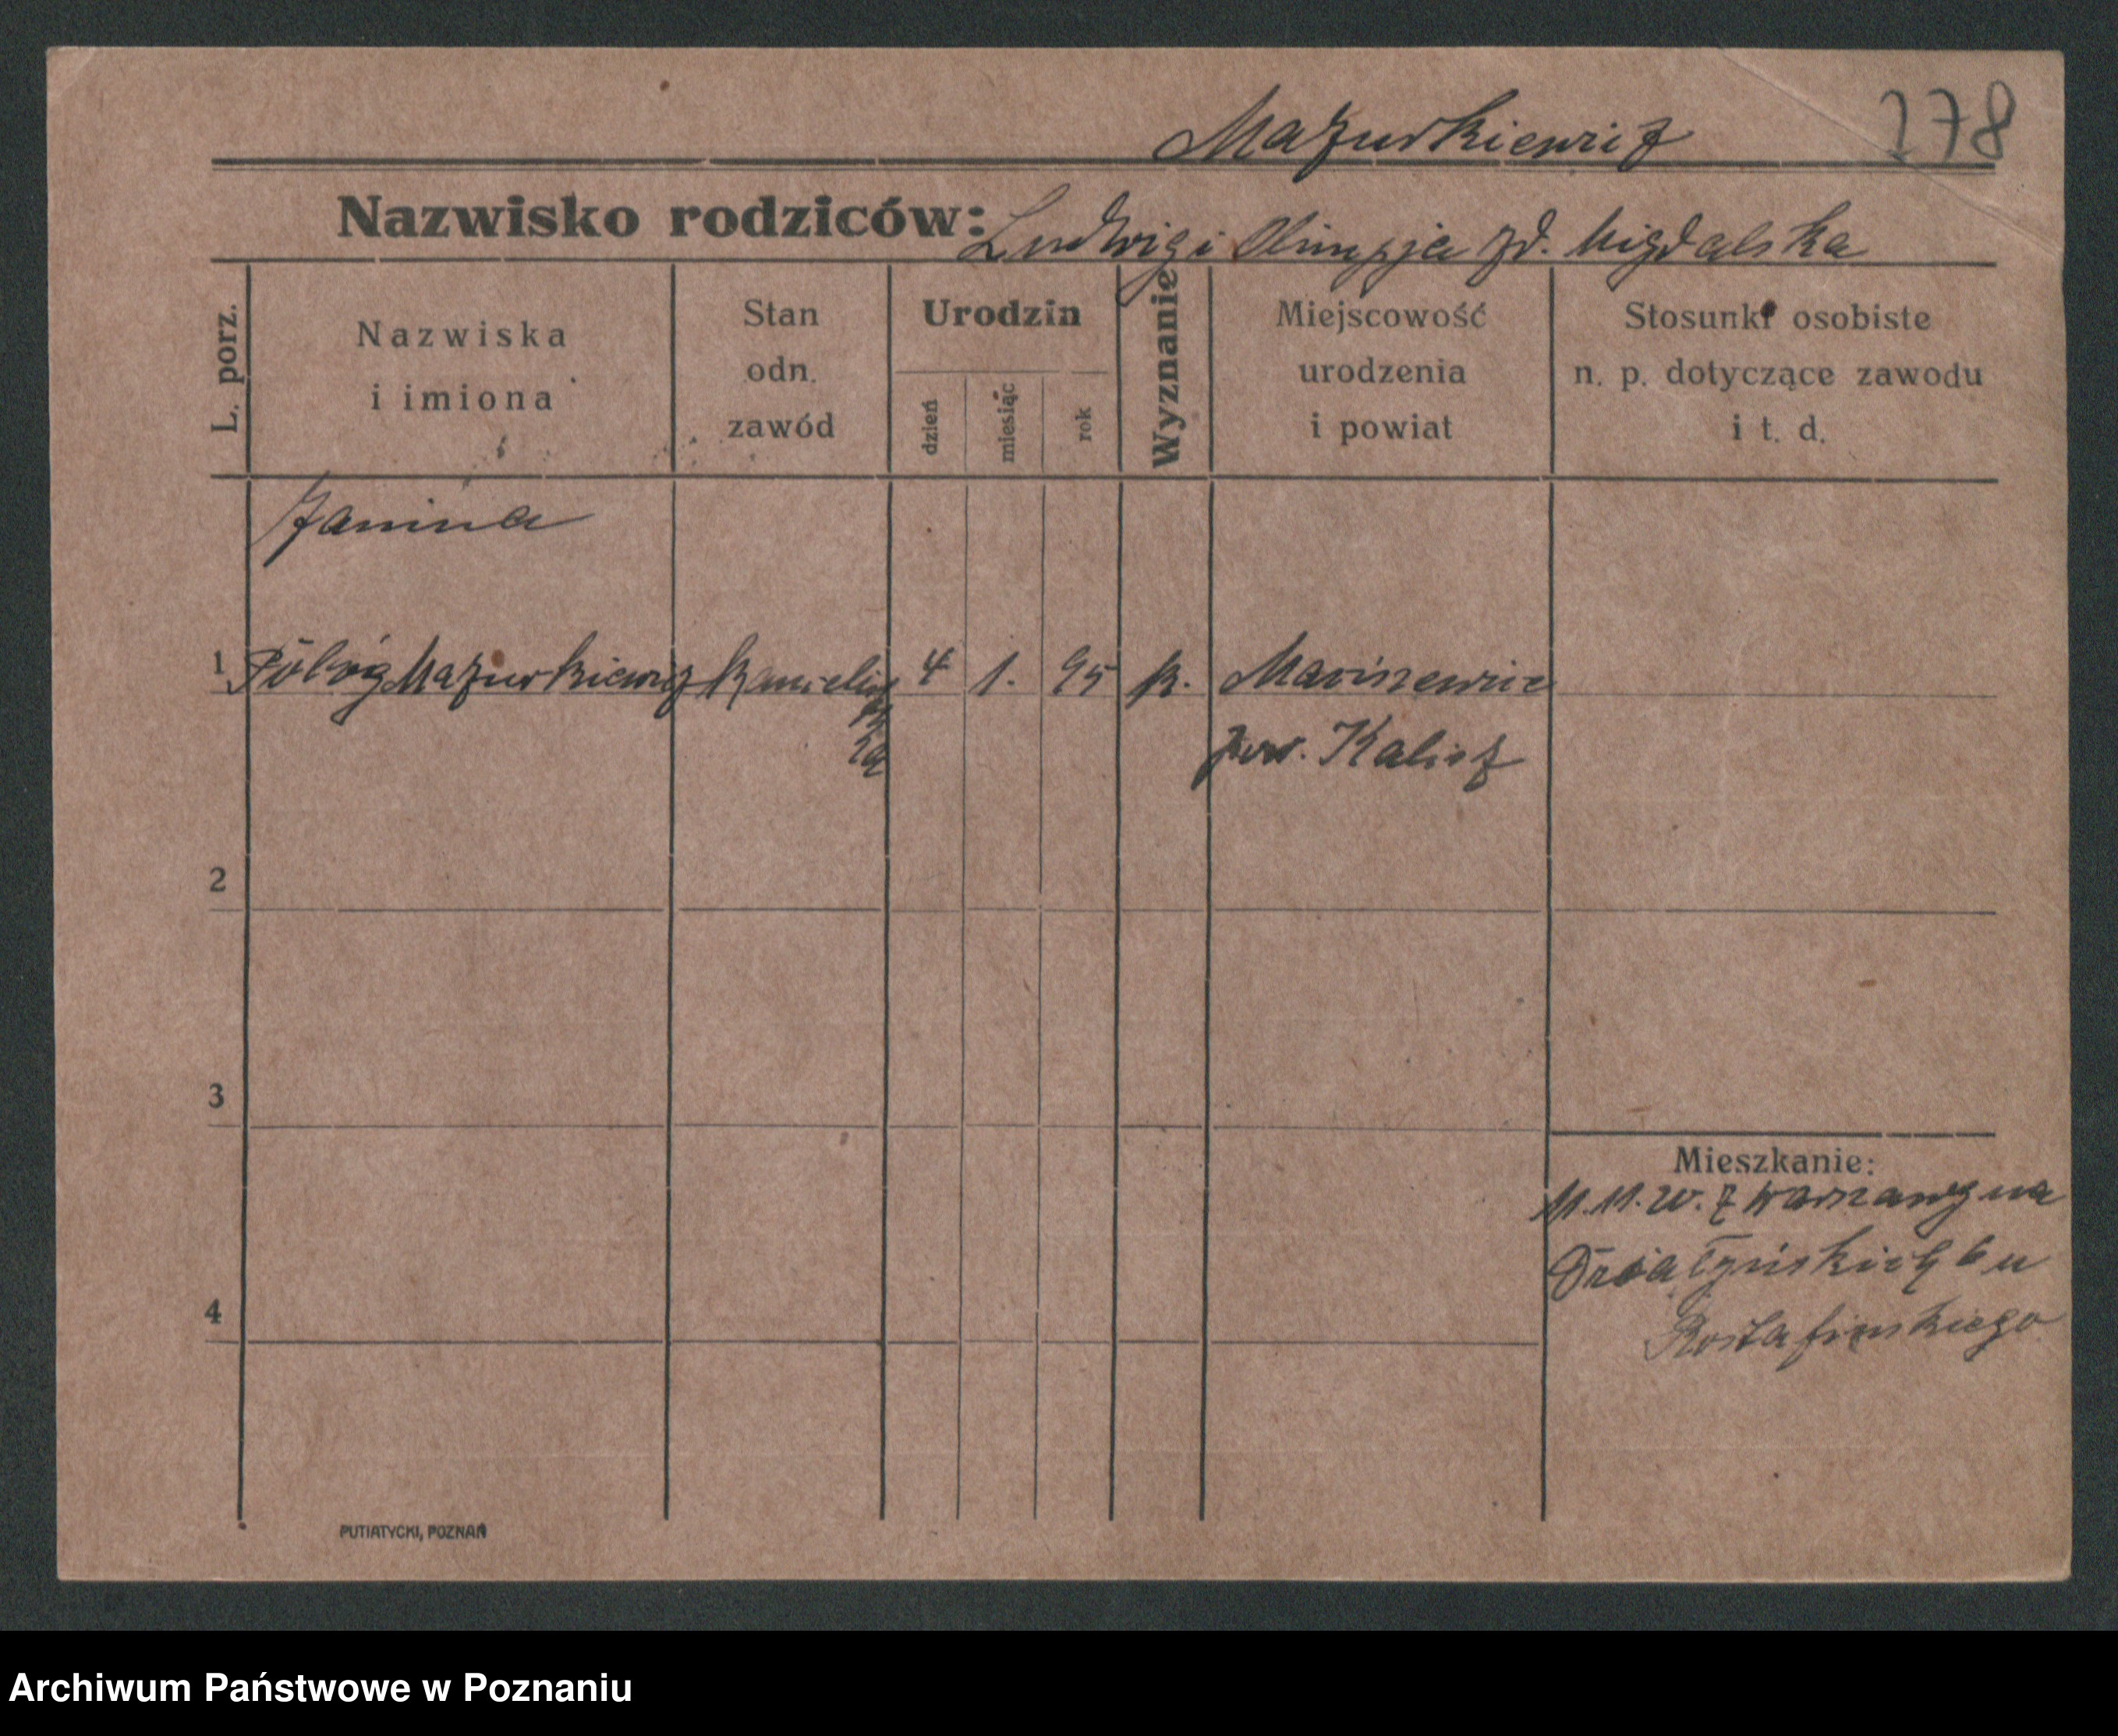 Mazurkiewicz
278
Nazwisko rodziców: Ludwig i Olimpja zd. Migdalska
L. porz.
Nazwiska
i imiona
Stan
odn.
zawód
Urodzin
dzień
miesiąc
rok
Wyznanie
Miejscowość
urodzenia
i powiat
Stosunki osobiste
n. p. dotyczące zawodu
i t. d.
Janina
1 Mazurkiewicz 4 1. 95 k.
pow. Kalisz
2
3
4
Mieszkanie:
z Warszawy na
Działyńskich 6 u
Rostafinskiego
PUTIATYCKI, POZNAŃ
Archiwum Państwowe w Poznaniu